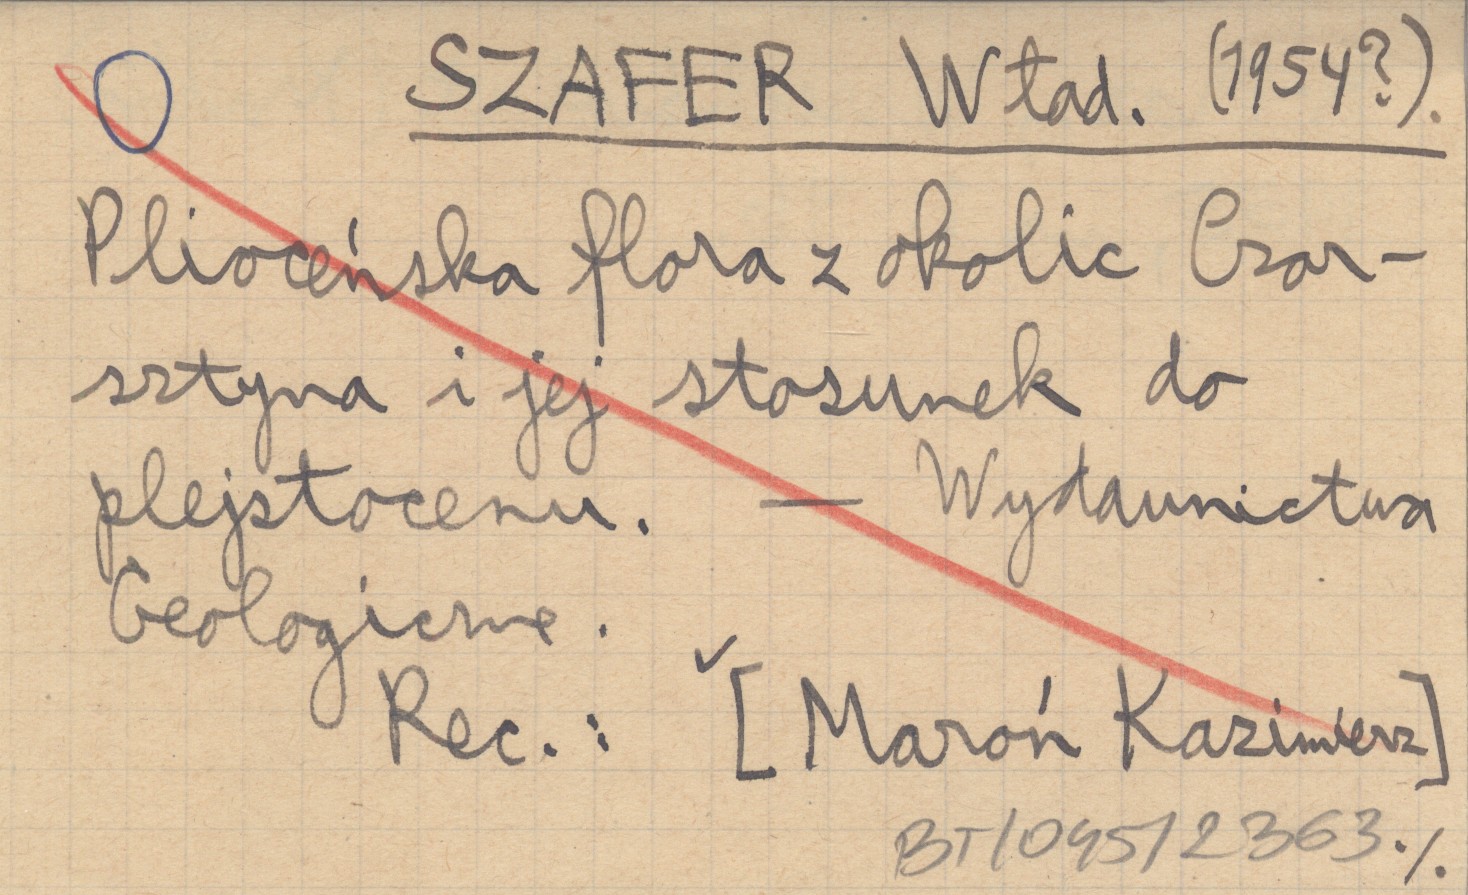 SZAFER Wład. (1954?).
Plioceńska flora z okolic Czor-
sztyna i jej stosunek do
plejstocenu. — Wydawnictwa
Geologiczne.
Rec.: [Maroń Kazimierz]
BT/045/2363./.